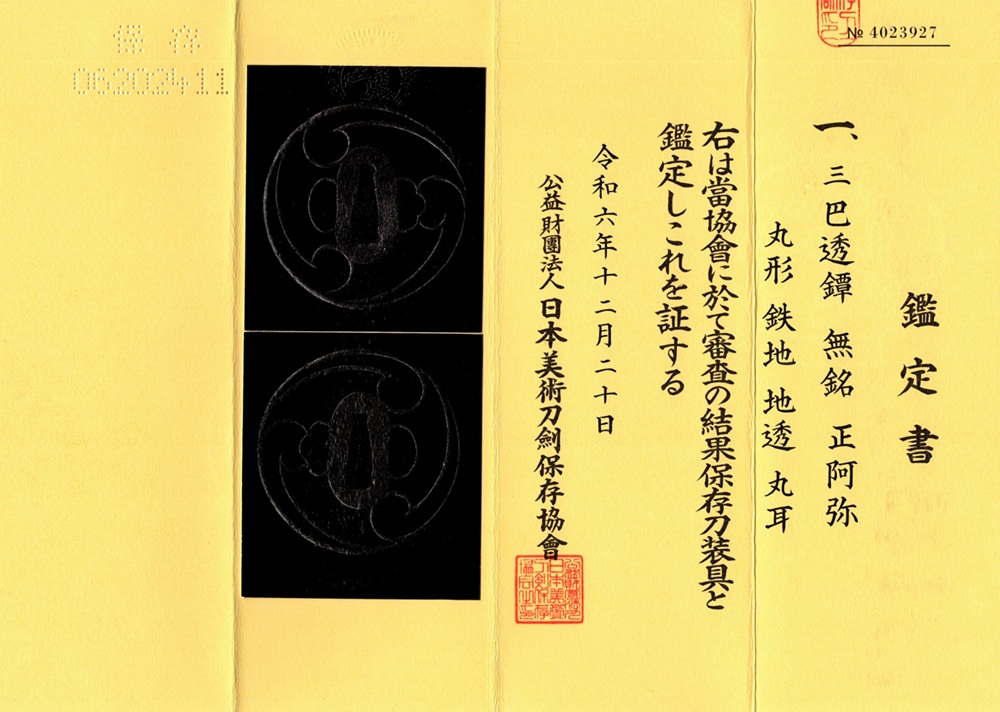 № 4023927
鑑定書
一、三巴透鐔 無銘 正阿弥
丸形 鉄地 地透 丸耳
右は當協會に於て審査の結果保存刀装具と
鑑定しこれを証する
令和六年十二月二十日
公益財團法人 日本美術刀劍保存協會
保存
06202411